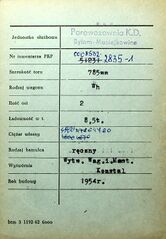 Jednostka służbowa
Parowozownia K.D.
Bytom-Maciejkowice
Nr inwentarza PKP
2835-1
Szerokość toru 785mm
Rodzaj wagonu Wh
Ilość osi 2
Ładowność w t. 8,5t.
Ciężar własny
Rodzaj hamulca ręczny
Wytwórnia Wytw. Wag.i Most.
Konstal
Rok budowy 1954r.